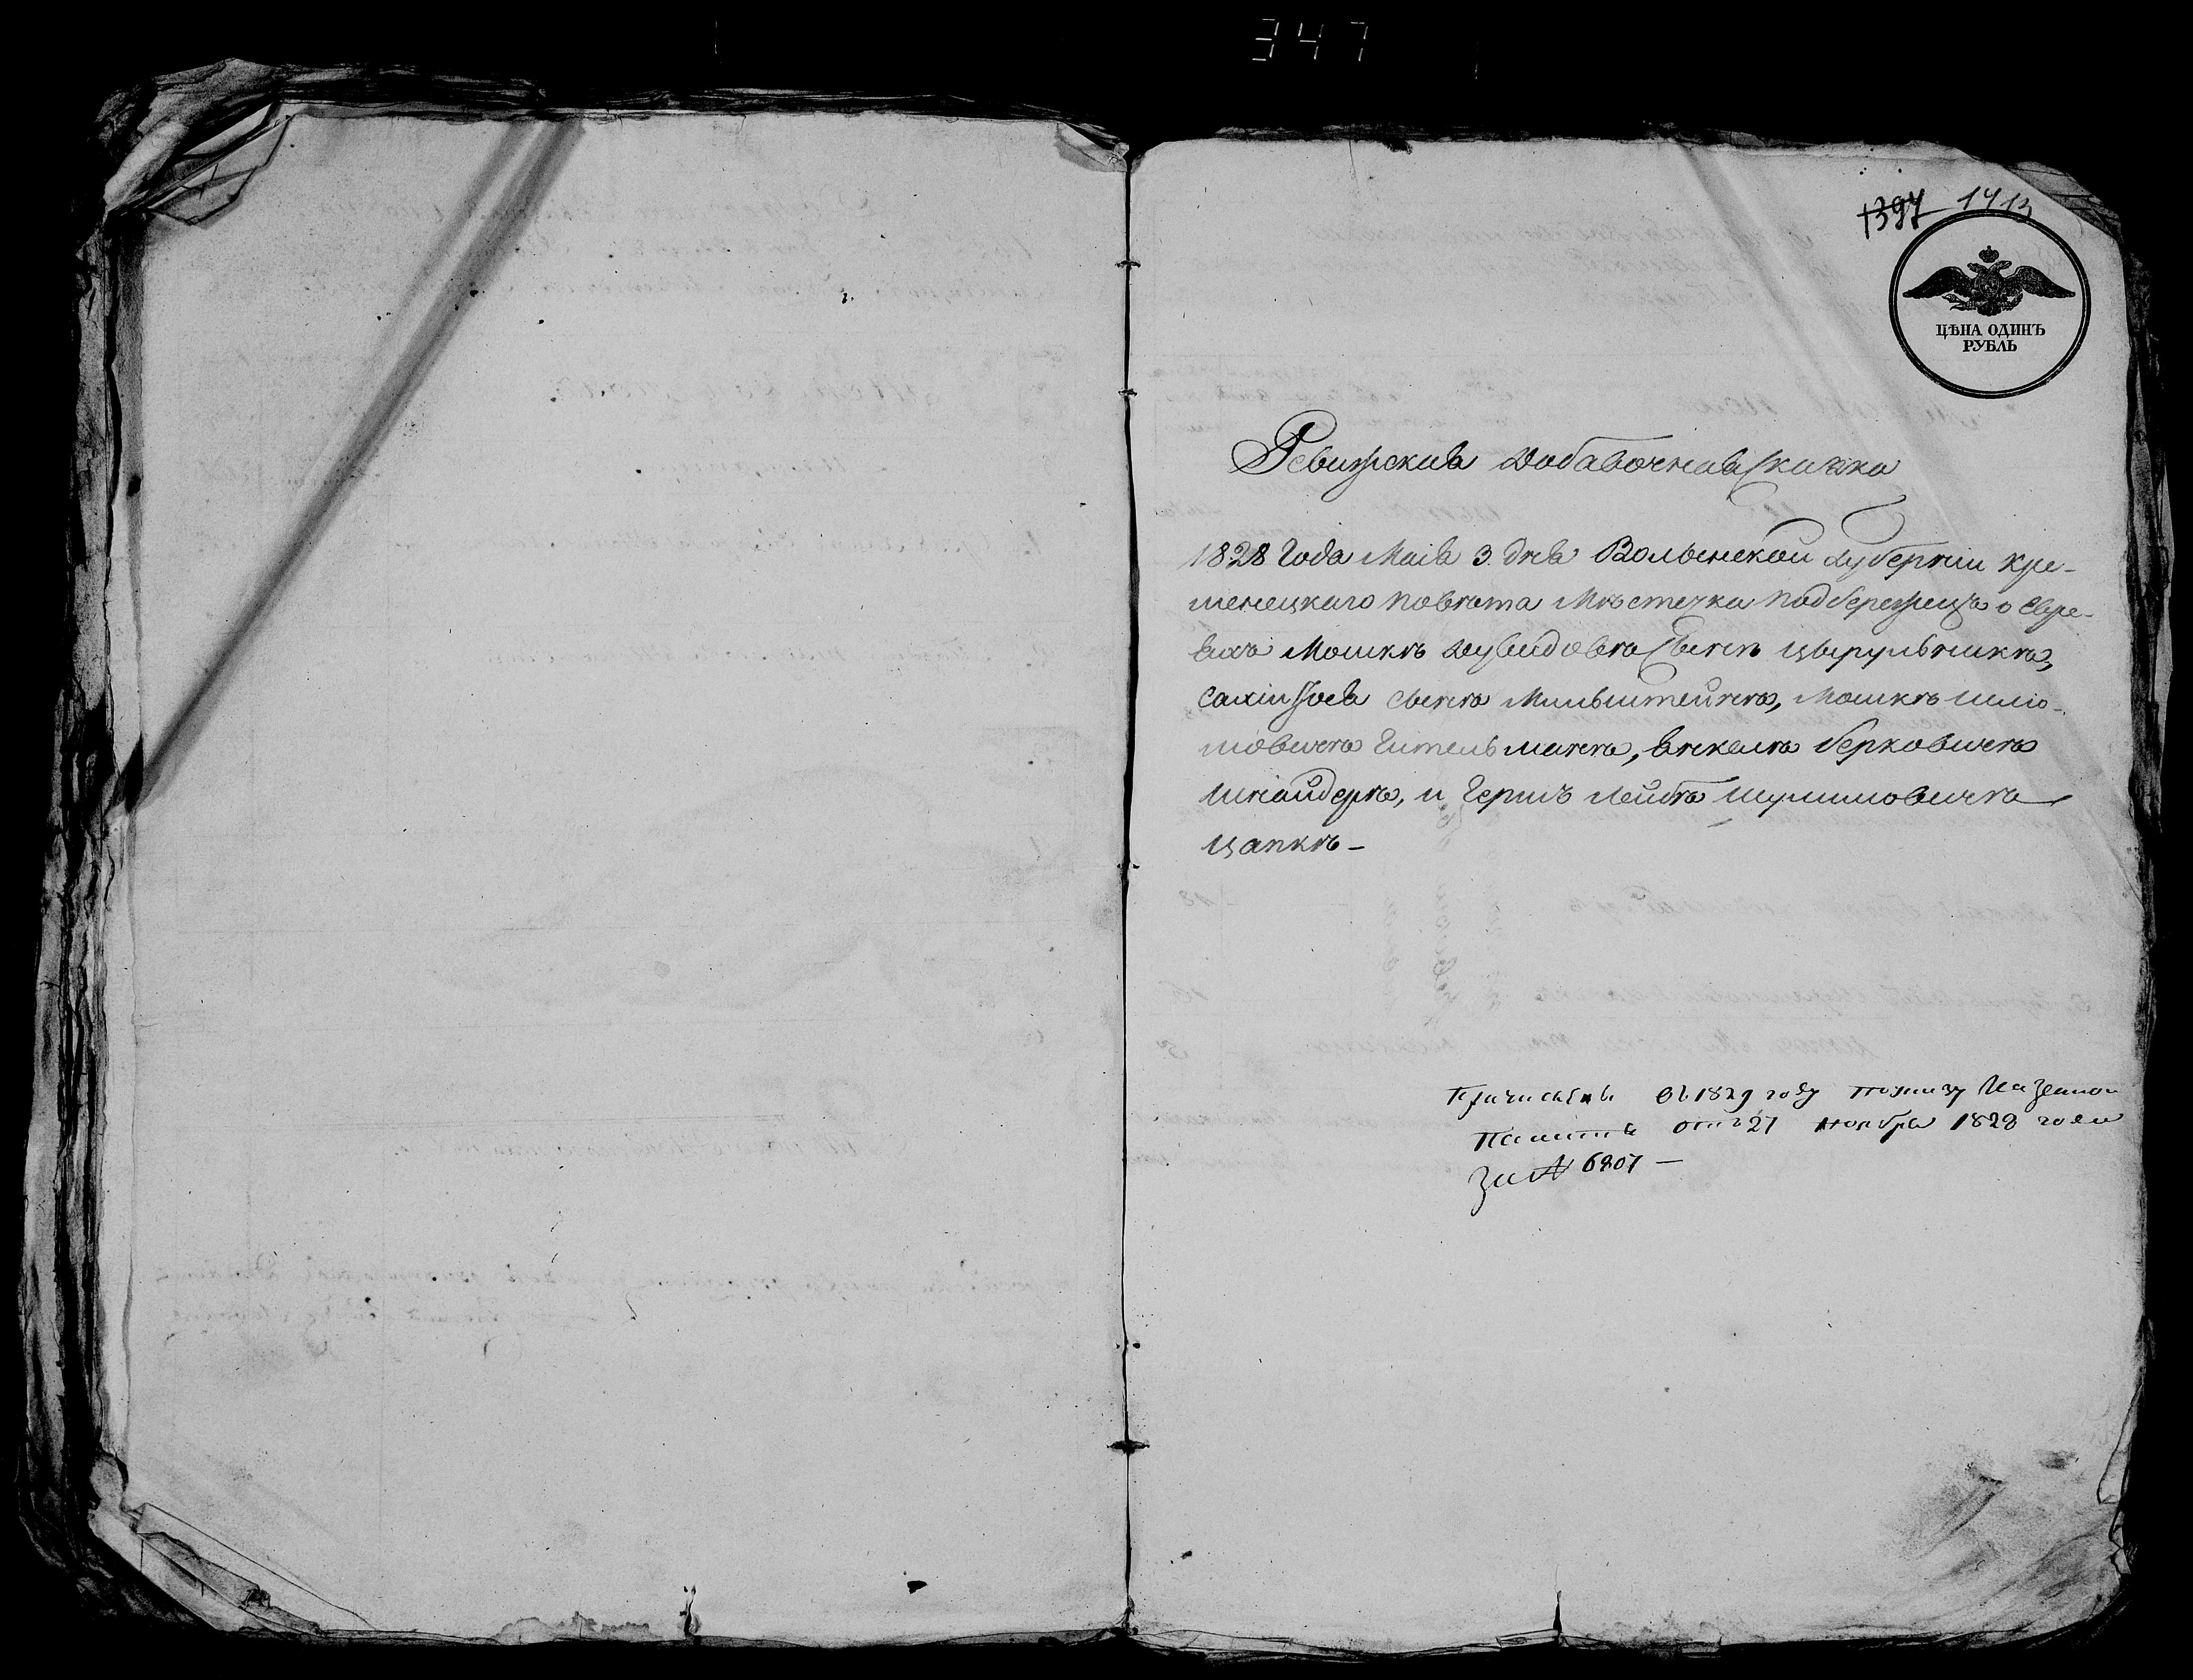 347
1397 1413
ЦѢНА ОДИНЪ
РУБЛЬ
Ревижская Добавочная Сказка
1828 Года Маія 3. дня Волынской Губерніи Кре-
менецкаго Повѣта Мѣстечка Подбережецъ о Евре-
яхъ Мошкѣ Дувидовѣ Сынѣ Цырульникѣ,
Сынѣ Мильштейнѣ, Мошкѣ Шлио-
мовичѣ Гительманѣ, Янкелѣ Берковичѣ
Шнайдерѣ, и Гершъ Лейбѣ Шулимовичѣ
Цапкѣ –
Причислены въ 1829 году по указу Казенной
Палаты отъ 27 Ноября 1828 года
За № 6807 –